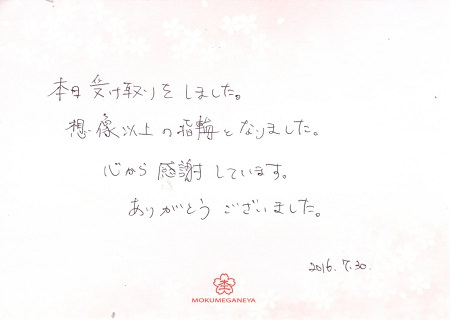 本日受け取りをしました。
想像以上の指輪となりました。
心から感謝しています。
ありがとうございました。
2016.7.30.
MOKUMEGANEYA